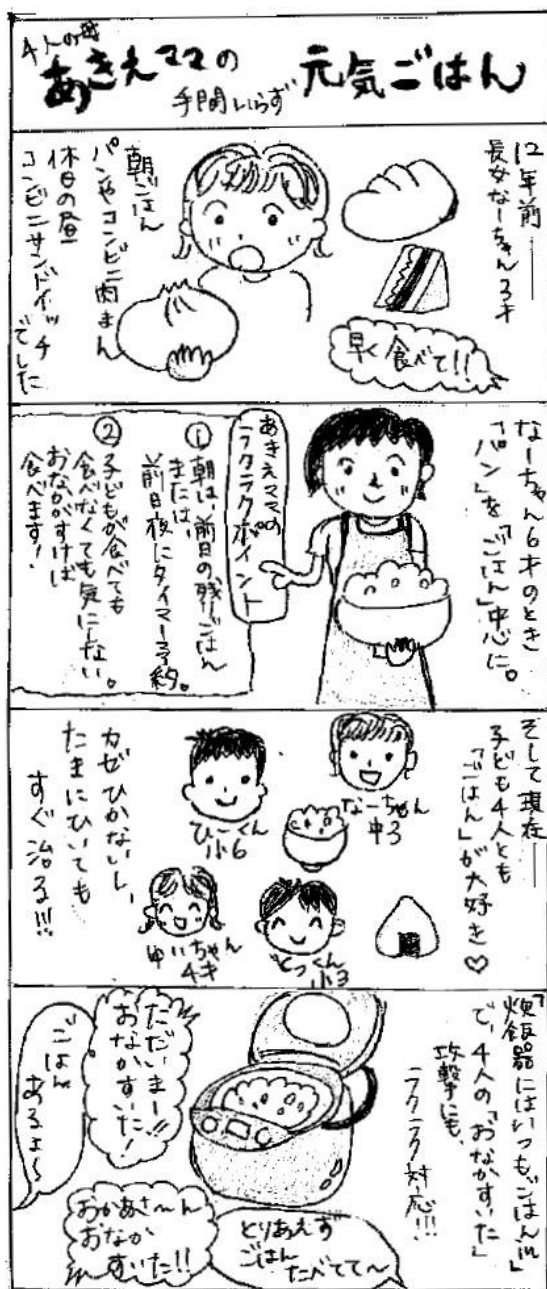 4人の母
あきえママの
手間いらず
元気ごはん
12年前
長女なーちゃん3才
早く食べて!!
朝ごはん
パンやコンビニ肉まん
休日の昼
コンビニサンドイッチ
でした
なーちゃん6才のとき
「パン」を「ごはん」中心に。
あきえママの
ラクラクポイント
①朝は、前日の残りごはん
または、
前日夜にタイマー予約。
②子どもが食べても
食べなくても気にしない。
おなかがすけば
食べます!
そして現在
子ども4人とも
「ごはん」が大好き♡
なーちゃん
中3
ひーくん
小6
とっくん
小3
ゆいちゃん
4才
カゼひかないし、
たまにひいても
すぐ治る!!!
「炊飯器にはいつもごはん!!!」
で、4人の「おなかすいた」
攻撃にも、
ラクラク対応!!!
ただいまー!!
おなかすいた!
ごはん
あるよ〜
おかあさ〜ん
おなか
すいた!!
とりあえず
ごはん
たべてて〜